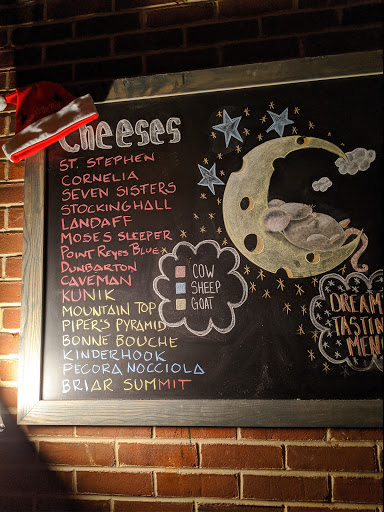 Cheeses
ST. STEPHEN
CORNELIA
SEVEN SISTERS
STOCKINGHALL
LANDAFF
MOSES SLEEPER
POINT REYES BLUE
DUNBARTON
CAVEMAN
KUNIK
MOUNTAIN TOP
PIPER'S PYRAMID
BONNE BOUCHE
KINDERHOOK
PECORA NOCCIOLA
BRIAR SUMMIT
COW
SHEEP
GOAT
DREAM
TASTIN
MEN